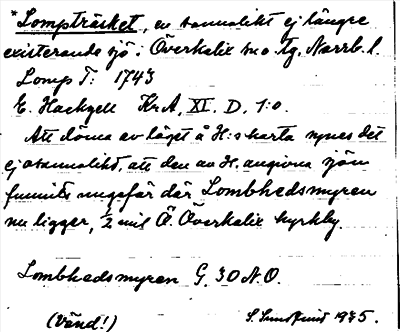 *Lompträsket, en sannolikt ej längre
existerande sjö i Överkalix sn o. tg. Norrb. l.
Lomp T: 1743
E. Hackzell KrA, XI. D. 1:o.
Att döma av läget å H:s karta synes det
ej osannolikt, att den av H. angivna sjön
funnits ungefär där Lombhedsmyren
nu ligger, ½ mil Ö. Överkalix kyrkby.
Lombhedsmyren G. 30 N.O.
(Vänd!) S. Sundqvist 1935.